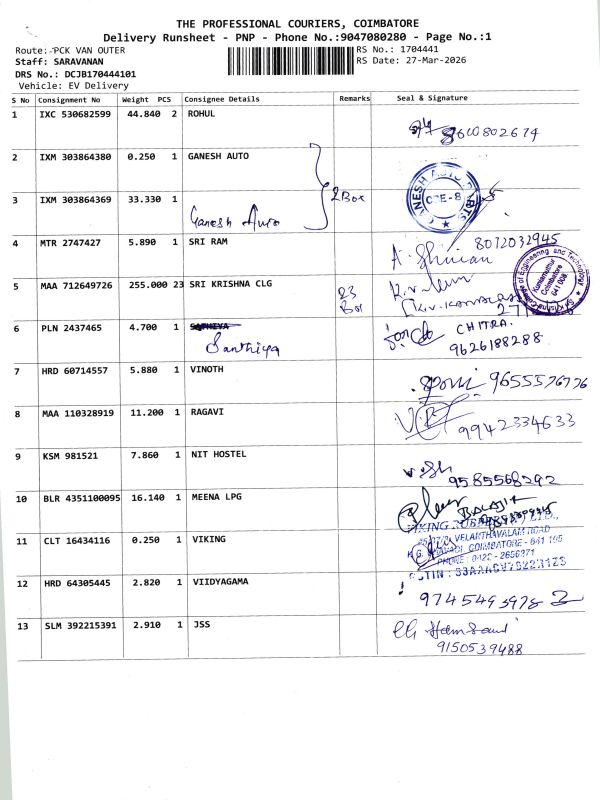 THE PROFESSIONAL COURIERS, COIMBATORE
Delivery Runsheet - PNP - Phone No.:9047080280 - Page No.:1
Route: PCK VAN OUTER
RS No.: 1704441
Staff: SARAVANAN
RS Date: 27-Mar-2026
DRS No.: DCJB170444101
Vehicle: EV Delivery
S No Consignment No Weight PCS Consignee Details Remarks Seal & Signature
1 IXC 530682599 44.840 2 ROHUL
8600802674
2 IXM 303864380 0.250 1 GANESH AUTO
2 Box
3 IXM 303864369 33.330 1
Ganesh Auto
GANESH AUTO PARTS
CBE-8
4 MTR 2747427 5.890 1 SRI RAM
8072032945
5 MAA 712649726 255.000 23 SRI KRISHNA CLG
23 Box
Sri Krishna College of Engineering and Technology
Kuniamuthur
Coimbatore
641 008
6 PLN 2437465 4.700 1 SATHIYA
Santhiya
CHITRA.
9626188288
7 HRD 60714557 5.880 1 VINOTH
9655576776
8 MAA 110328919 11.200 1 RAGAVI
9942334633
9 KSM 981521 7.860 1 NIT HOSTEL
9585568292
10 BLR 4351100095 16.140 1 MEENA LPG
BALAJI
11 CLT 16434116 0.250 1 VIKING
VELANTHAVALAM ROAD
COIMBATORE - 641 105
PHONE : 0422 - 2656371
12 HRD 64305445 2.820 1 VIIDYAGAMA
9745493978
13 SLM 392215391 2.910 1 JSS
9150539488